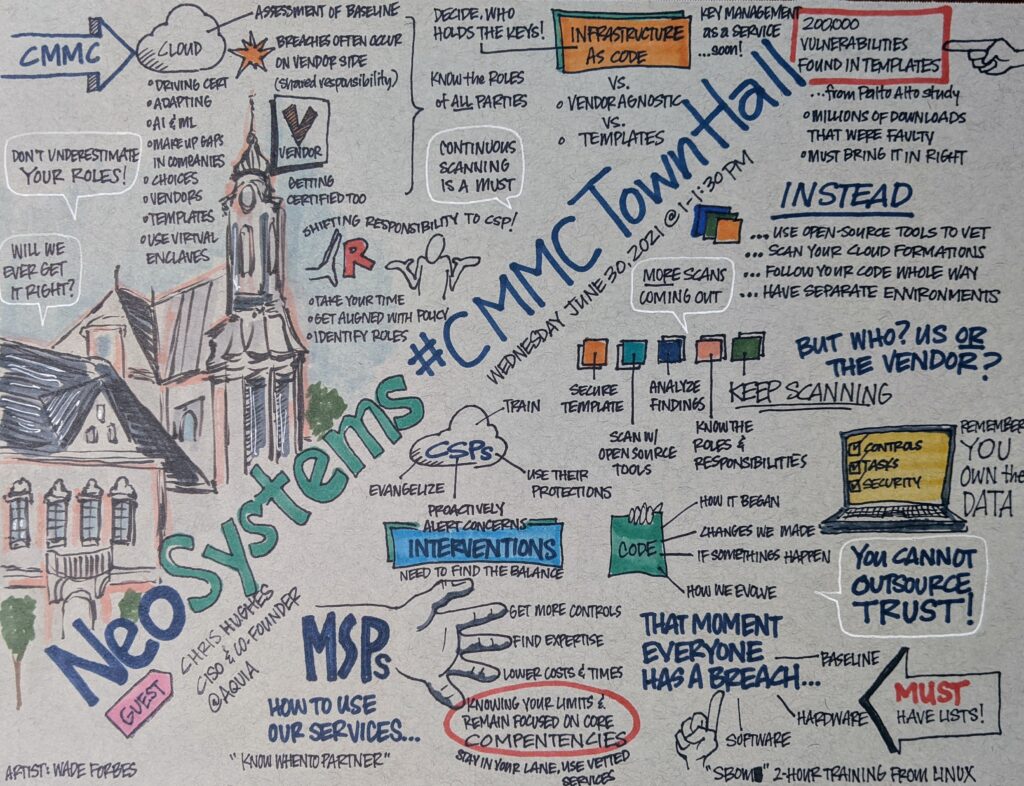 CMMC
CLOUD
ASSESSMENT OF BASELINE
BREACHES OFTEN OCCUR
ON VENDOR SIDE
(shared responsibility)
• DRIVING CERT
• ADAPTING
• AI & ML
• MAKE UP GAPS
IN COMPANIES
• CHOICES
• VENDORS
• TEMPLATES
• USE VIRTUAL
ENCLAVES
V
VENDOR
GETTING
CERTIFIED TOO
DON'T UNDERESTIMATE
YOUR ROLES!
WILL WE
EVER GET
IT RIGHT?
DECIDE, WHO
HOLDS THE KEYS!
KNOW the ROLES
of ALL PARTIES
CONTINUOUS
SCANNING
IS A MUST
INFRASTRUCTURE
AS CODE
VS.
• VENDOR AGNOSTIC
VS.
• TEMPLATES
KEY MANAGEMENT
as a SERVICE
...soon!
200,000
VULNERABILITIES
FOUND IN TEMPLATES
...from Palto Alto study
• MILLIONS OF DOWNLOADS
THAT WERE FAULTY
• MUST BRING IT IN RIGHT
SHIFTING RESPONSIBILITY TO CSP!
R
• TAKE YOUR TIME
• GET ALIGNED WITH POLICY
• IDENTIFY ROLES
NeoSystems #CMMC TownHall
WEDNESDAY JUNE 30, 2021 @ 1-1:30 PM
GUEST
CHRIS HUGHES
CISO & CO-FOUNDER
@AQUIA
INSTEAD
... USE OPEN-SOURCE TOOLS TO VET
... SCAN YOUR CLOUD FORMATIONS
... FOLLOW YOUR CODE WHOLE WAY
... HAVE SEPARATE ENVIRONMENTS
MORE SCANS
COMING OUT
BUT WHO? US OR
THE VENDOR?
SECURE
TEMPLATE
SCAN W/
OPEN SOURCE
TOOLS
ANALYZE
FINDINGS
KNOW THE
ROLES &
RESPONSIBILITIES
KEEP SCANNING
TRAIN
CSPs
EVANGELIZE
USE THEIR
PROTECTIONS
PROACTIVELY
ALERT CONCERNS
INTERVENTIONS
NEED TO FIND THE BALANCE
CODE
HOW IT BEGAN
CHANGES WE MADE
IF SOMETHINGS HAPPEN
HOW WE EVOLVE
CONTROLS
TASKS
SECURITY
REMEMBER
YOU
OWN the
DATA
YOU CANNOT
OUTSOURCE
TRUST!
MSPs
HOW TO USE
OUR SERVICES...
"KNOW WHEN TO PARTNER"
GET MORE CONTROLS
FIND EXPERTISE
LOWER COSTS & TIMES
KNOWING YOUR LIMITS &
REMAIN FOCUSED ON CORE
COMPENTENCIES
STAY IN YOUR LANE, USE VETTED
SERVICES
THAT MOMENT
EVERYONE
HAS A BREACH...
BASELINE
HARDWARE
SOFTWARE
MUST
HAVE LISTS!
"SBOM" 2-HOUR TRAINING FROM LINUX
ARTIST: WADE FORBES